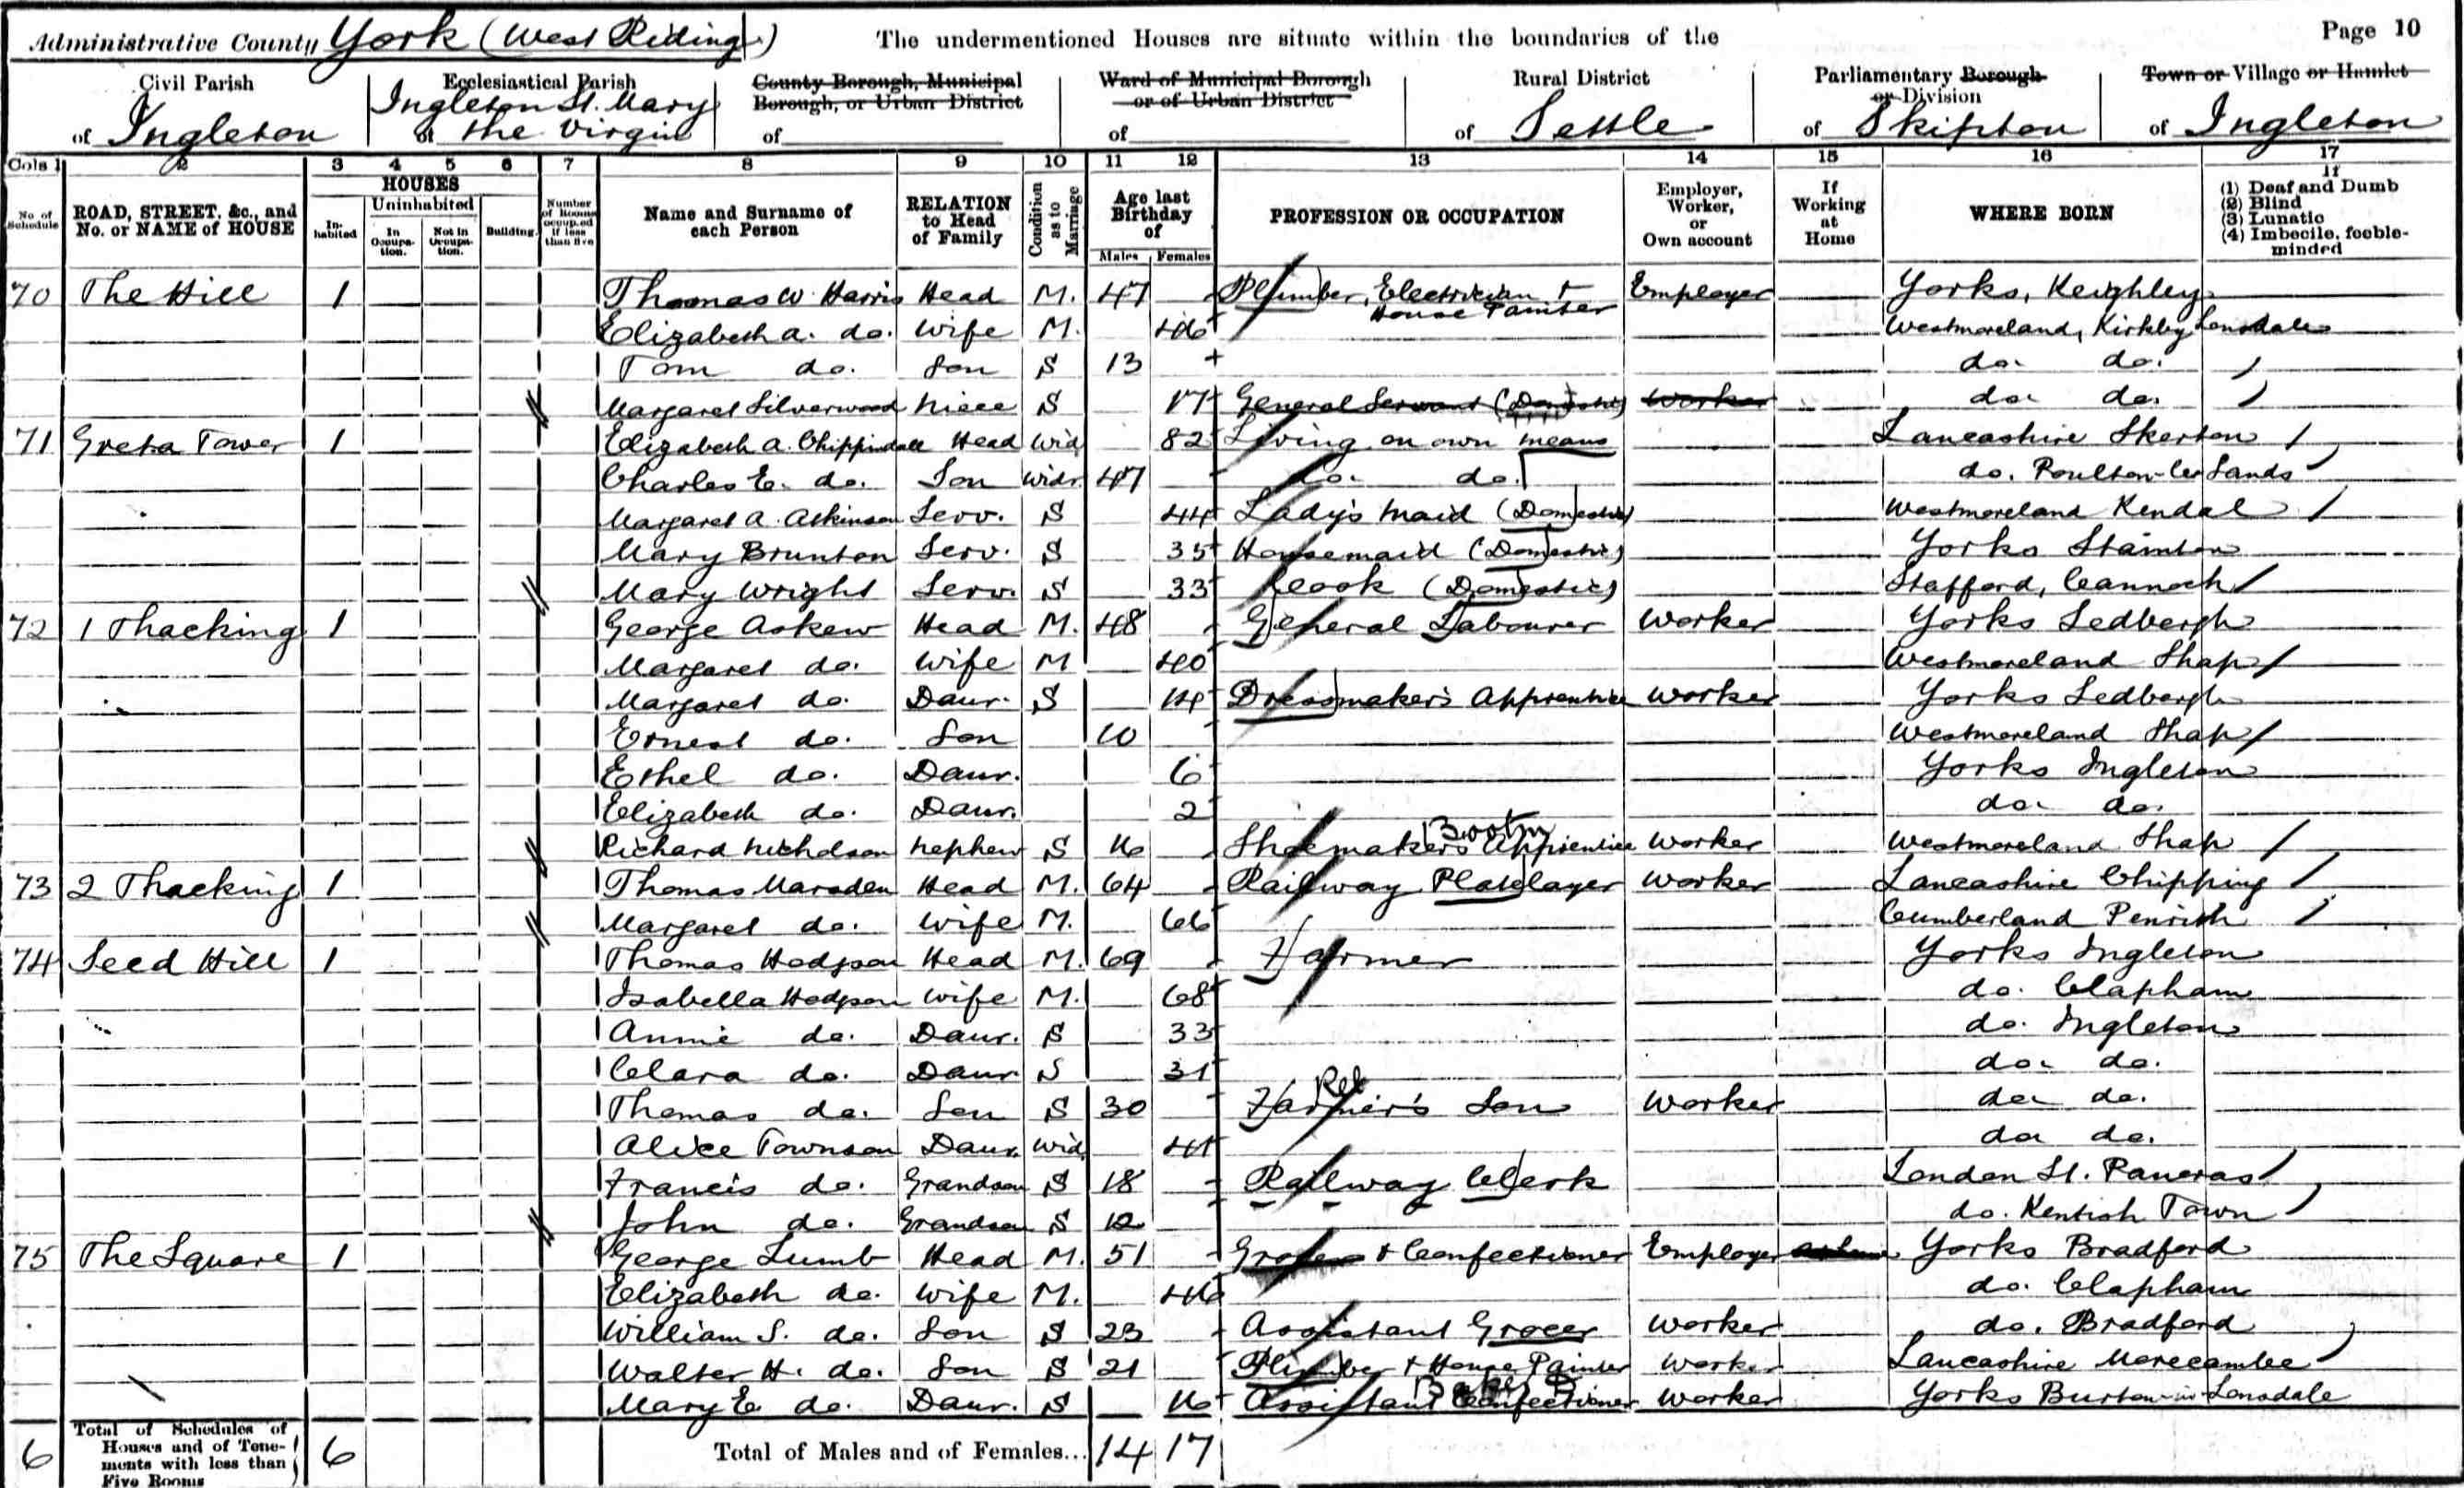 Administrative County York (West Riding) The undermentioned Houses are situate within the boundaries of the Page 10
Civil Parish Ecclesiastical Parish County Borough, Municipal Borough, or Urban District Ward of Municipal Borough or of Urban District Rural District Parliamentary Borough or Division Town or Village or Hamlet
of Ingleton Ingleton St. Mary of the Virgin of of of Settle of Skipton of Ingleton
Cols 1 2 3 4 5 6 7 8 9 10 11 12 13 14 15 16 17
No. of Schedule ROAD, STREET, &c., and No. or NAME of HOUSE HOUSES Inhabited Uninhabited In Occupation. Not in Occupation. Building. Number of Rooms occupied if less than five Name and Surname of each Person RELATION to Head of Family Condition as to Marriage Age last Birthday of Males Females PROFESSION OR OCCUPATION Employer, Worker, or Own account If Working at Home WHERE BORN If (1) Deaf and Dumb (2) Blind (3) Lunatic (4) Imbecile, feeble-minded
70 The Hill 1 Thomas W. Harris Head M. 47 Plumber, Electrician + House Painter Employer Yorks, Keighley
Elizabeth A. do. Wife M. 46 Westmoreland, Kirkby Lonsdale
Tom do. Son S 13 do. do.
Margaret Silverwood Niece S 17 General Servant (Domestic) Worker do. do.
71 Greta Tower 1 Elizabeth A. Chippindall Head Wid 82 Living on own means Lancashire Skerton
Charles E. do. Son Widr. 47 do. do. do. Poulton-le-Sands
Margaret A. Atkinson Serv. S 44 Lady's Maid (Domestic) Westmoreland Kendal
Mary Brunton Serv. S 35 Housemaid (Domestic) Yorks Stainton
Mary Wright Serv. S 33 Cook (Domestic) Stafford, Cannock
72 1 Thacking 1 George Askew Head M. 48 General Labourer Worker Yorks Sedbergh
Margaret do. Wife M 40 Westmoreland Shap
Margaret do. Daur. S 14 Dressmaker's Apprentice Worker Yorks Sedbergh
Ernest do. Son 10 Westmoreland Shap
Ethel do. Daur. 6 Yorks Ingleton
Elizabeth do. Daur. 2 do. do.
Richard Nicholson Nephew S 16 Shoemaker's Apprentice Worker Westmoreland Shap
73 2 Thacking 1 Thomas Marsden Head M. 64 Railway Platelayer Worker Lancashire Chipping
Margaret do. Wife M. 66 Cumberland Penrith
74 Seed Hill 1 Thomas Hodgson Head M. 69 Farmer Yorks Ingleton
Isabella Hodgson Wife M. 68 do. Clapham
Annie do. Daur. S 33 do. Ingleton
Clara do. Daur. S 31 do. do.
Thomas do. Son S 30 Farmer's Son Rel Worker do. do.
Alice Townson Daur. Wid 41 do. do.
Francis do. Grandson S 18 Railway Clerk London St. Pancras
John do. Grandson S 12 do. Kentish Town
75 The Square 1 George Lumb Head M. 51 Grocer + Confectioner Employer Yorks Bradford
Elizabeth do. Wife M. 46 do. Clapham
William S. do. Son S 23 Assistant Grocer Worker do. Bradford
Walter H. do. Son S 21 Plumber + House Painter Worker Lancashire Morecambe
Mary E. do. Daur. S 16 Assistant Confectioner Worker Yorks Burton-in-Lonsdale
6 Total of Schedules of Houses and of Tenements with less than Five Rooms 6 Total of Males and of Females... 14 17